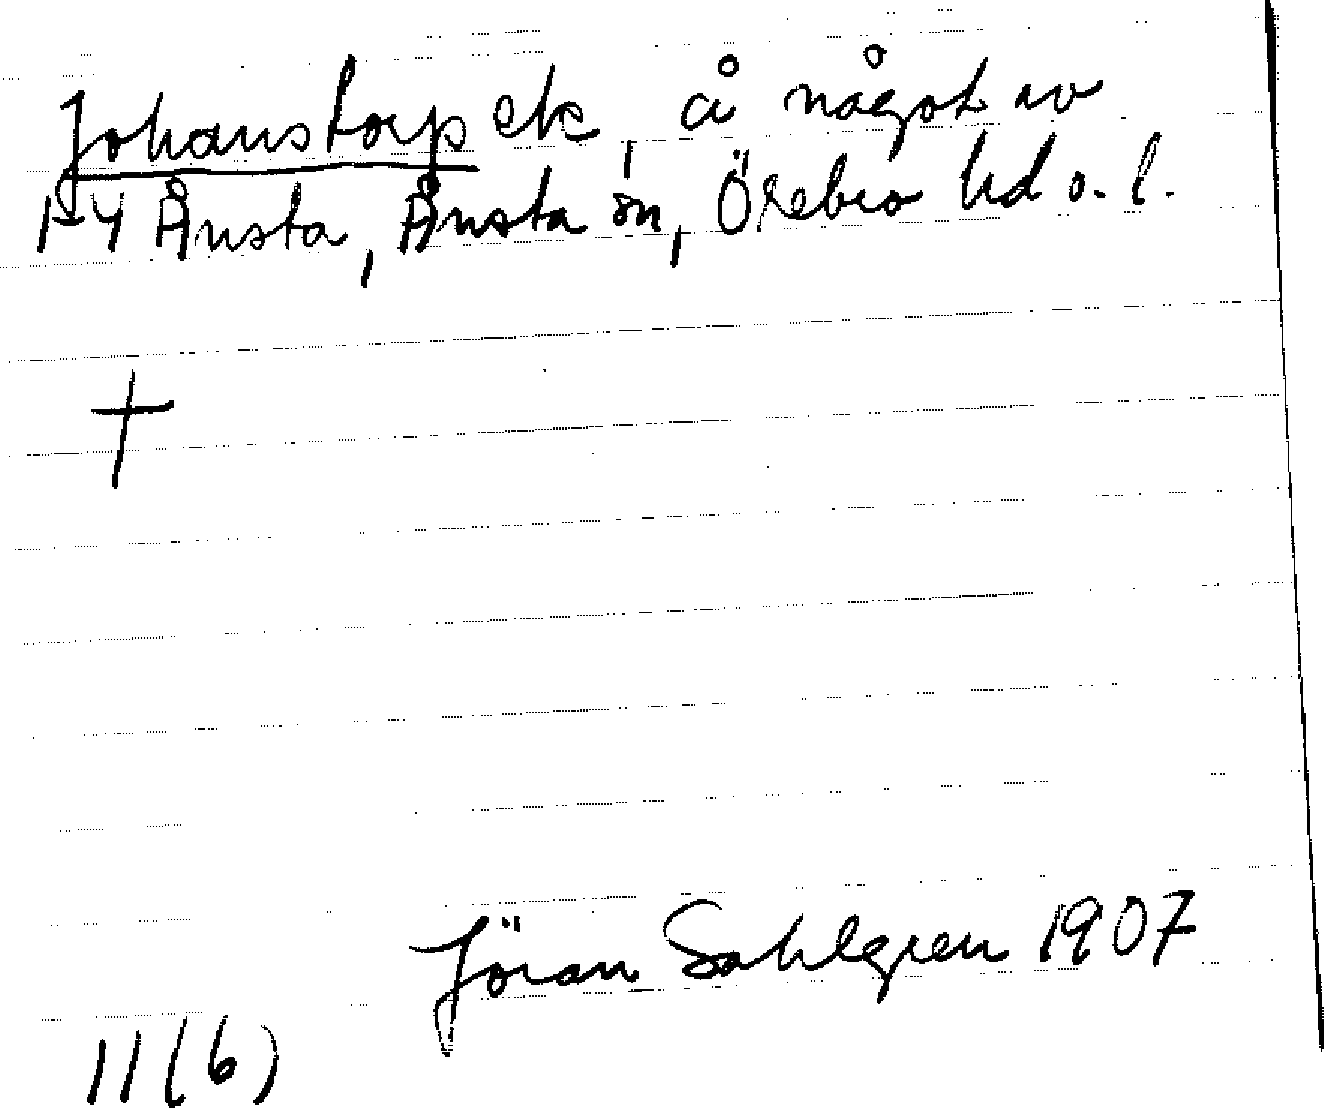 Johanstorp ek, å något av
1-4 Ånsta, Ånsta sn, Örebro hd o. l.
†
Jöran Sahlgren 1907
11(6)